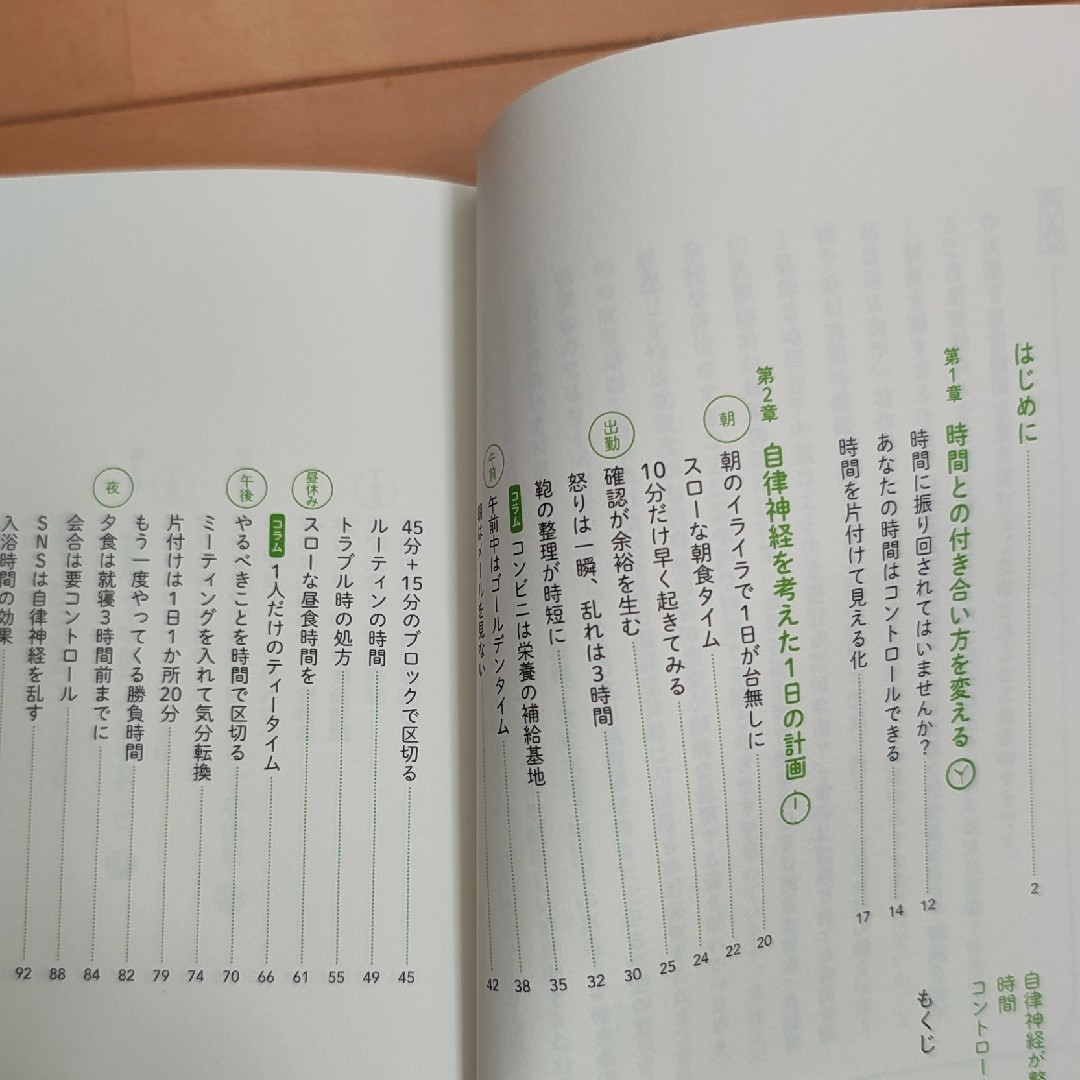 自律神経が
時間
コントロー
もくじ
はじめに 2
第1章 時間との付き合い方を変える
時間に振り回されてはいませんか? 12
あなたの時間はコントロールできる 14
時間を片付けて見える化 17
第2章 自律神経を考えた1日の計画
朝 朝のイライラで1日が台無しに 20
スローな朝食タイム 22
10分だけ早く起きてみる 24
出勤 確認が余裕を生む 25
怒りは一瞬、乱れは3時間 30
鞄の整理が時短に 32
コラム コンビニは栄養の補給基地 35
午前 午前中はゴールデンタイム 38
はメールを見ない 42
45分+15分のブロックで区切る 45
ルーティンの時間 49
トラブル時の処方 55
昼休み スローな昼食時間を 61
コラム 1人だけのティータイム 66
午後 やるべきことを時間で区切る 70
ミーティングを入れて気分転換 74
片付けは1日1か所20分 79
もう一度やってくる勝負時間 82
夜 夕食は就寝3時間前までに 84
会合は要コントロール 88
SNSは自律神経を乱す 92
入浴時間の効果